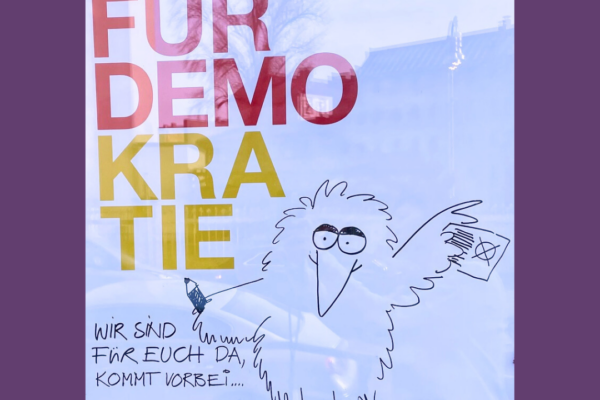 FÜR
DEMO
KRA
TIE
WIR SIND
FÜR EUCH DA,
KOMMT VORBEI....